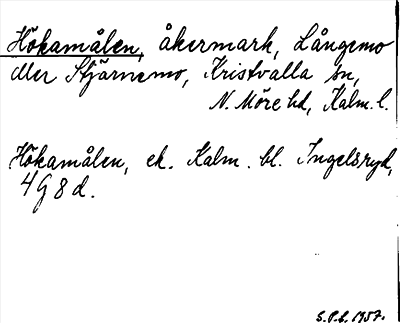 Hökamålen, åkermark, Långemo
eller Stjärnemo, Kristvalla sn,
N. Möre hd, Kalm. l.
Hökamålen, ek. Kalm. bl. Ingelsryd,
4G8d.
S.P.L. 1957.